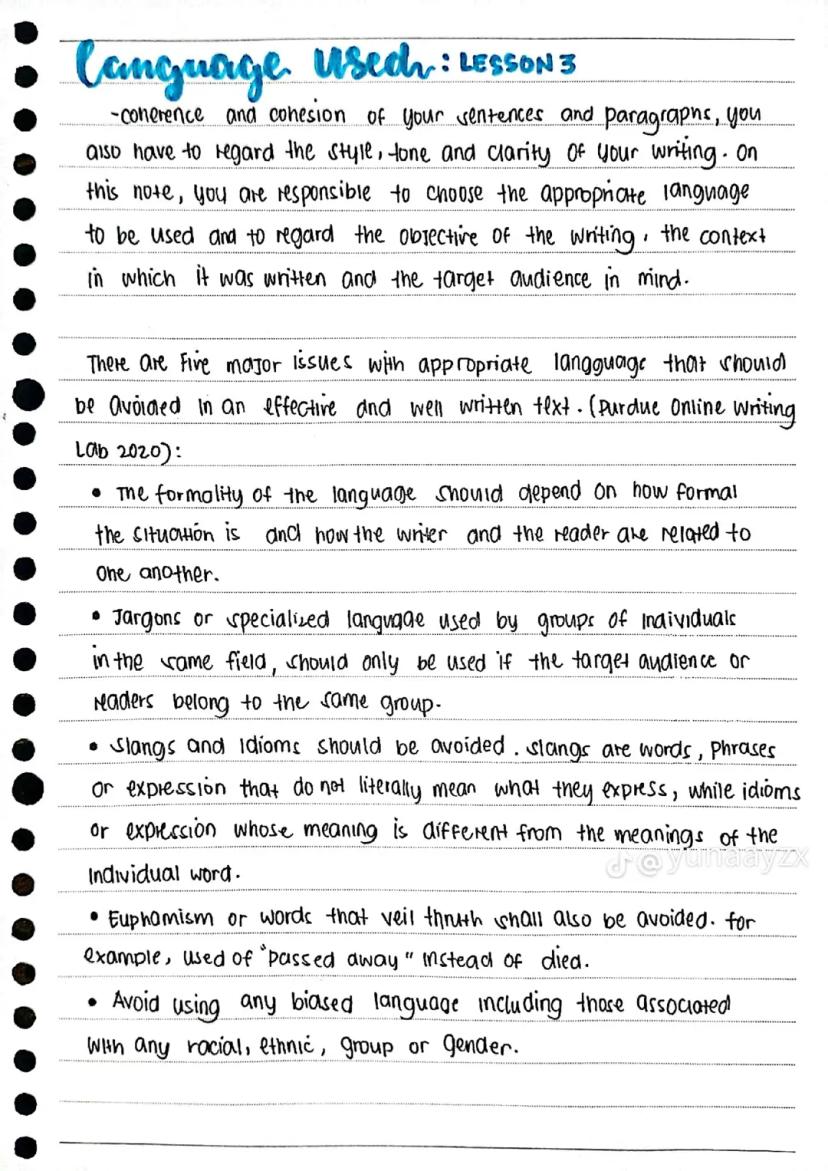 Language Used: LESSON 3
-coherence and cohesion of your sentences and paragraphs, you
also have to regard the style, tone and clarity of your writing. On
this note, you are responsible to choose the appropriate language
to be used and to regard the objective of the writing, the context
in which it was written and the target audience in mind.
There are Five major issues with appropriate langguage that should
be avoided in an effective and well written text. (Purdue Online Writing
Lab 2020):
• The formality of the language should depend on how formal
the situation is and how the writer and the reader are related to
one another.
• Jargons or specialized language used by groups of individuals
in the same field, should only be used if the target audience or
readers belong to the same group.
• Slangs and Idioms should be avoided. Slangs are words, phrases
or expression that do not literally mean what they express, while idioms
or expression whose meaning is different from the meanings of the
individual word.
@yunaayzx
• Euphamism or words that veil thruth shall also be avoided. for
example, used of "passed away" instead of died.
• Avoid using any biased language including those associated
with any racial, ethnic, group or gender.